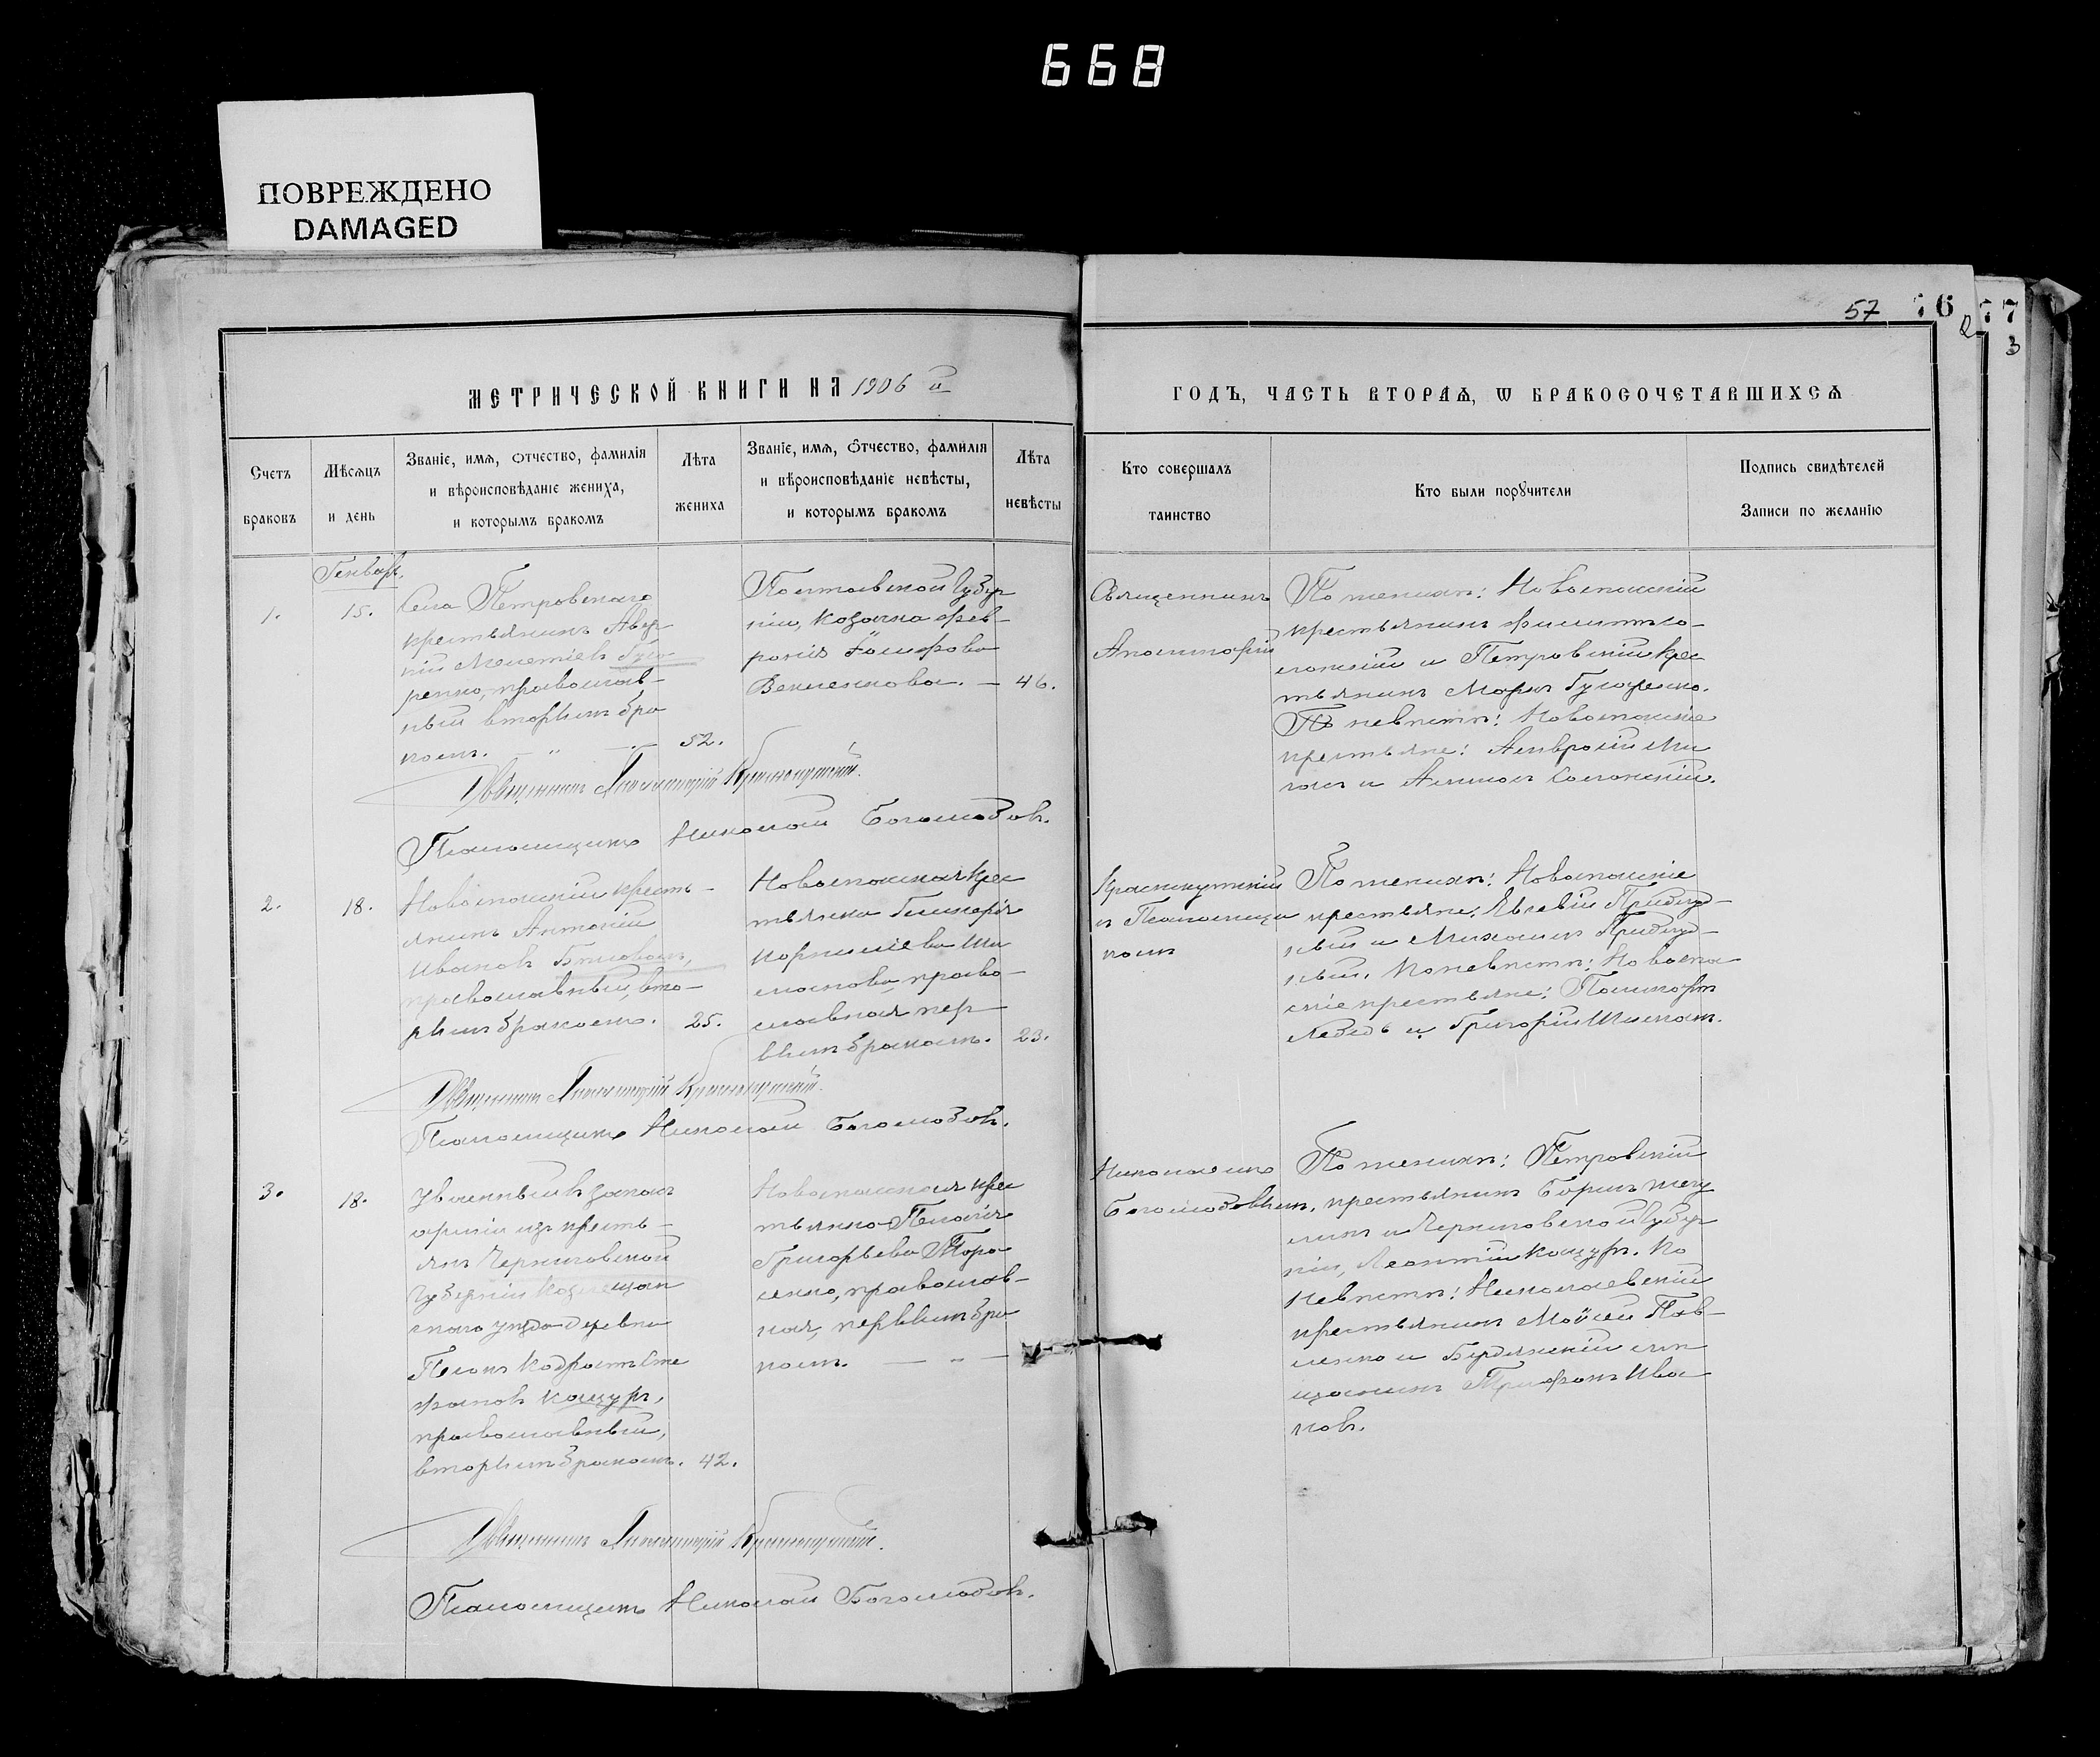 668
ПОВРЕЖДЕНО
DAMAGED
57 76 77
2 3
МЕТРИЧЕСКОЙ КНИГИ НА 1906 й
ГОДЪ, ЧАСТЬ ВТОРАѦ, Ѡ БРАКОСОЧЕТАВШИХСѦ
Счетъ
браковъ
Мѣсѧцъ
и день
Званіе, имѧ, ѿчество, фамилія
и вѣроисповѣданіе жениха,
и которымъ бракомъ
Лѣта
жениха
Званіе, имѧ, ѿчество, фамилія
и вѣроисповѣданіе невѣсты,
и которымъ бракомъ
Лѣта
невѣсты
Кто совершалъ
таинство
Кто были порꙋчители
Подпись свидѣтелей
Записи по желанію
Генварь.
1.
15.
Села Петровскаго
крестьянинъ Авер-
кій Мелетіевъ Гуса
ренко, православ-
ный вторымъ бра
комъ. — " —
52.
Полтавской губер
ніи, козачка Фев-
ронія
46.
Священникъ
Аполинарій
По женихѣ: Новоспасскій
крестьянинъ
и Петровскій крес
тьянинъ Маркъ Гусаренко.
По невѣстѣ: Новоспаскіе
крестьяне: Амвросій Ми
и
Священникъ Аполинарій Краснокутскій.
Псаломщикъ Николай Богомазовъ.
2.
18.
Новоспаскій кресть-
янинъ Антоній
Ивановъ Бѣловолъ,
православный, вто-
рымъ бракомъ.
25.
Новоспаская крес
тьянка Гликерія
Корниліева Ши
православная пер
вымъ бракомъ.
23.
Краснокутскій
съ Псаломщи
комъ
По женихѣ: Новоспаскіе
крестьяне: Евлевій
ный и Михаилъ
ный. По невѣстѣ: Новоспа
скіе крестьяне: Поликарпъ
Лебедь и Григорій
Священникъ Аполинарій Краснокутскій.
Псаломщикъ Николай Богомазовъ.
3.
18.
Уволенный въ запасъ
арміи изъ кресть-
янъ Черниговской
губерніи Козелецкаго
уѣзда деревни
Кодратъ Сте
фановъ Кацуръ,
православный,
вторымъ бракомъ.
42.
Новоспаская крес
тьянка Пелагія
Григорьева Тара
сенко, православ-
ная, первымъ бра
комъ. — " —
Николаемъ
Богомазовымъ.
По женихѣ: Петровскій
крестьянинъ Борисъ
и Черниговской губер
ніи, Леонтій Кацуръ. По
невѣстѣ: Николаевскій
крестьянинъ Моѵсей Пав-
ленко и Бердянскій мѣ
щанинъ Трифонъ Ива
новъ.
Священникъ Аполинарій Краснокутскій.
Псаломщикъ Николай Богомазовъ.